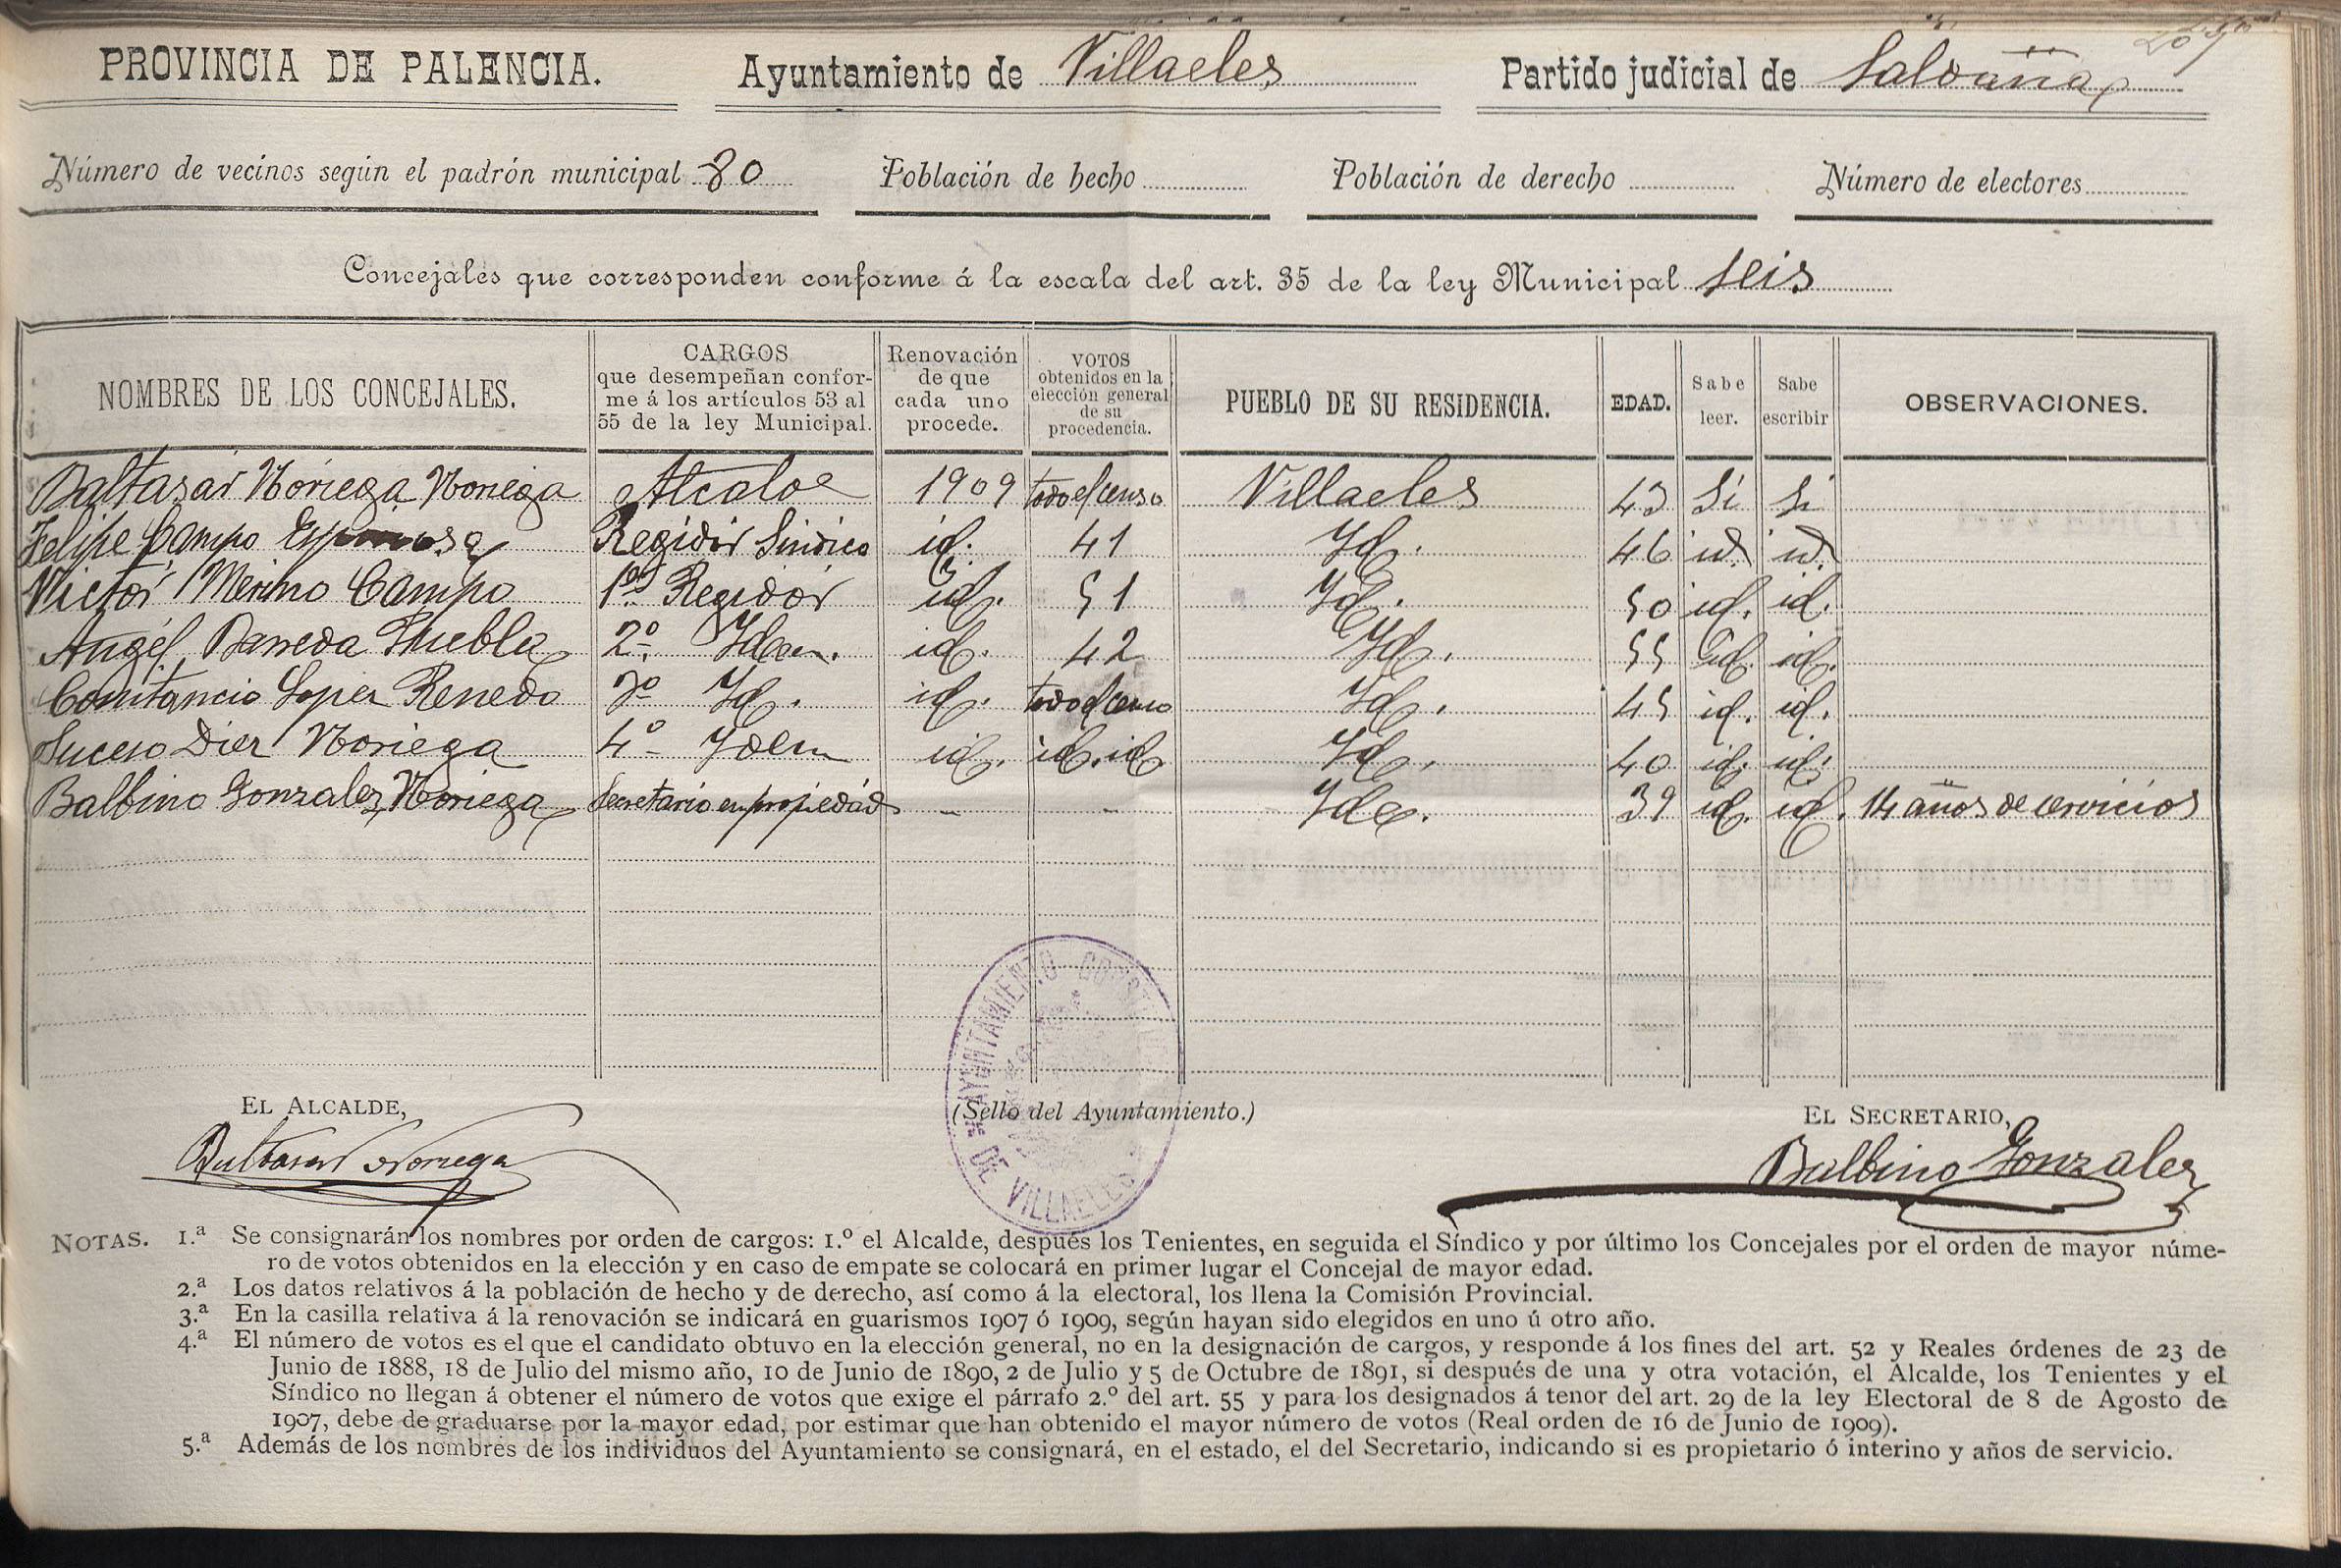 PROVINCIA DE PALENCIA. Ayuntamiento de Villaeles Partido judicial de Saldaña
Número de vecinos según el padrón municipal 80 Población de hecho Población de derecho Número de electores
Concejales que corresponden conforme á la escala del art. 35 de la ley Municipal seis
NOMBRES DE LOS CONCEJALES. CARGOS que desempeñan conforme á los artículos 53 al 55 de la ley Municipal. Renovación de que cada uno procede. VOTOS obtenidos en la elección general de su procedencia. PUEBLO DE SU RESIDENCIA. EDAD. Sabe leer. Sabe escribir OBSERVACIONES.
Baltasar Noriega Noriega Alcalde 1909 todo el censo Villaeles 43 Si Si
Felipe Campo Espinosa Regidor Sindico id. 41 Id. 46 id. id.
Victor Merino Campo 1º Regidor id. 51 Id. 50 id. id.
Angel Barreda Puebla 2º Idem. id. 42 Id. 55 id. id.
Constancio Lopez Renedo 3º Id. id. todo el censo Id. 45 id. id.
Sucero Diez Noriega 4º Idem id. id. id. Id. 40 id. id.
Balbino Gonzalez Noriega Secretario en propiedad - - Id. 39 id. id. 14 años de servicios
EL ALCALDE, (Sello del Ayuntamiento.) EL SECRETARIO,
Baltasar Noriega AYUNTAMIENTO DE VILLAELES Balbino Gonzalez
NOTAS. 1.ª Se consignarán los nombres por orden de cargos: 1.º el Alcalde, después los Tenientes, en seguida el Síndico y por último los Concejales por el orden de mayor núme-
ro de votos obtenidos en la elección y en caso de empate se colocará en primer lugar el Concejal de mayor edad.
2.ª Los datos relativos á la población de hecho y de derecho, así como á la electoral, los llena la Comisión Provincial.
3.ª En la casilla relativa á la renovación se indicará en guarismos 1907 ó 1909, según hayan sido elegidos en uno ú otro año.
4.ª El número de votos es el que el candidato obtuvo en la elección general, no en la designación de cargos, y responde á los fines del art. 52 y Reales órdenes de 23 de
Junio de 1888, 18 de Julio del mismo año, 10 de Junio de 1890, 2 de Julio y 5 de Octubre de 1891, si después de una y otra votación, el Alcalde, los Tenientes y el
Síndico no llegan á obtener el número de votos que exige el párrafo 2.º del art. 55 y para los designados á tenor del art. 29 de la ley Electoral de 8 de Agosto de
1907, debe de graduarse por la mayor edad, por estimar que han obtenido el mayor número de votos (Real orden de 16 de Junio de 1909).
5.ª Además de los nombres de los individuos del Ayuntamiento se consignará, en el estado, el del Secretario, indicando si es propietario ó interino y años de servicio.